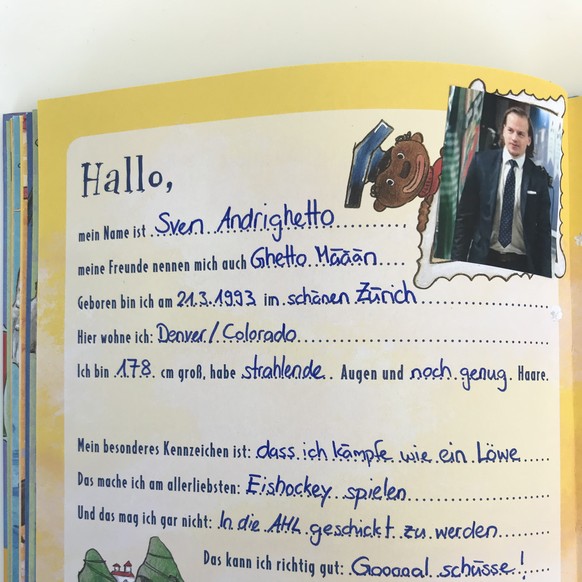 Hallo,
mein Name ist Sven Andrighetto
meine Freunde nennen mich auch Ghetto Määän
Geboren bin ich am 21.3.1993 im schönen Zürich
Hier wohne ich: Denver/Colorado
Ich bin 178 cm groß, habe strahlende Augen und noch genug Haare.
Mein besonderes Kennzeichen ist: dass ich kämpfe wie ein Löwe
Das mache ich am allerliebsten: Eishockey spielen
Und das mag ich gar nicht: In die AHL geschickt zu werden
Das kann ich richtig gut: Gooooal schüsse!